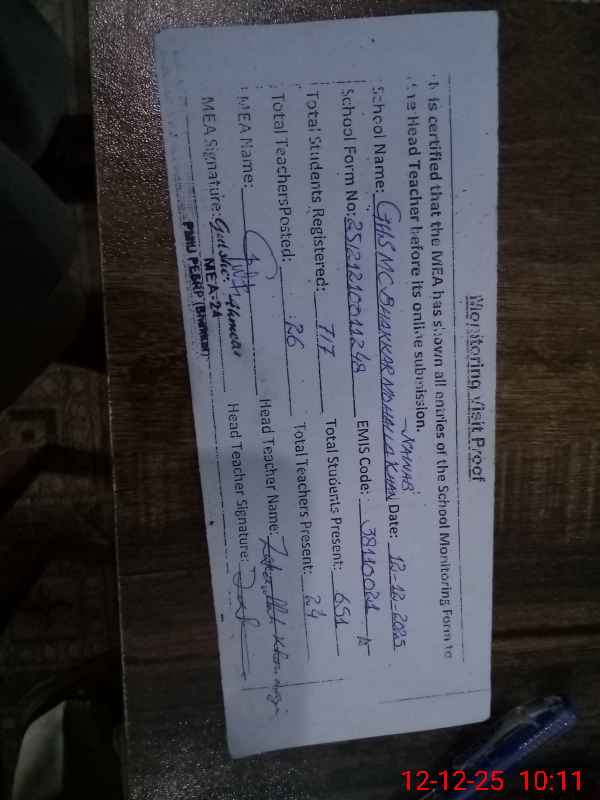 Monitoring Visit Proof
It is certified that the MEA has shown all entries of the School Monitoring Form to
the Head Teacher before its online submission.
School Name: GHS MC BHAKKAR MOHALLA NAWAB KHAN Date: 12-12-2025
School Form No: 25121210011248 EMIS Code: 38110021
Total Students Registered: 717 Total Students Present: 651
Total TeachersPosted: 26 Total Teachers Present: 24
MEA Name: Head Teacher Name: Zafarullah Khan
MEA Signature: Gul Sher Head Teacher Signature:
MEA-24
PMIU PESRP (Bhakkar)
12-12-25 10:11